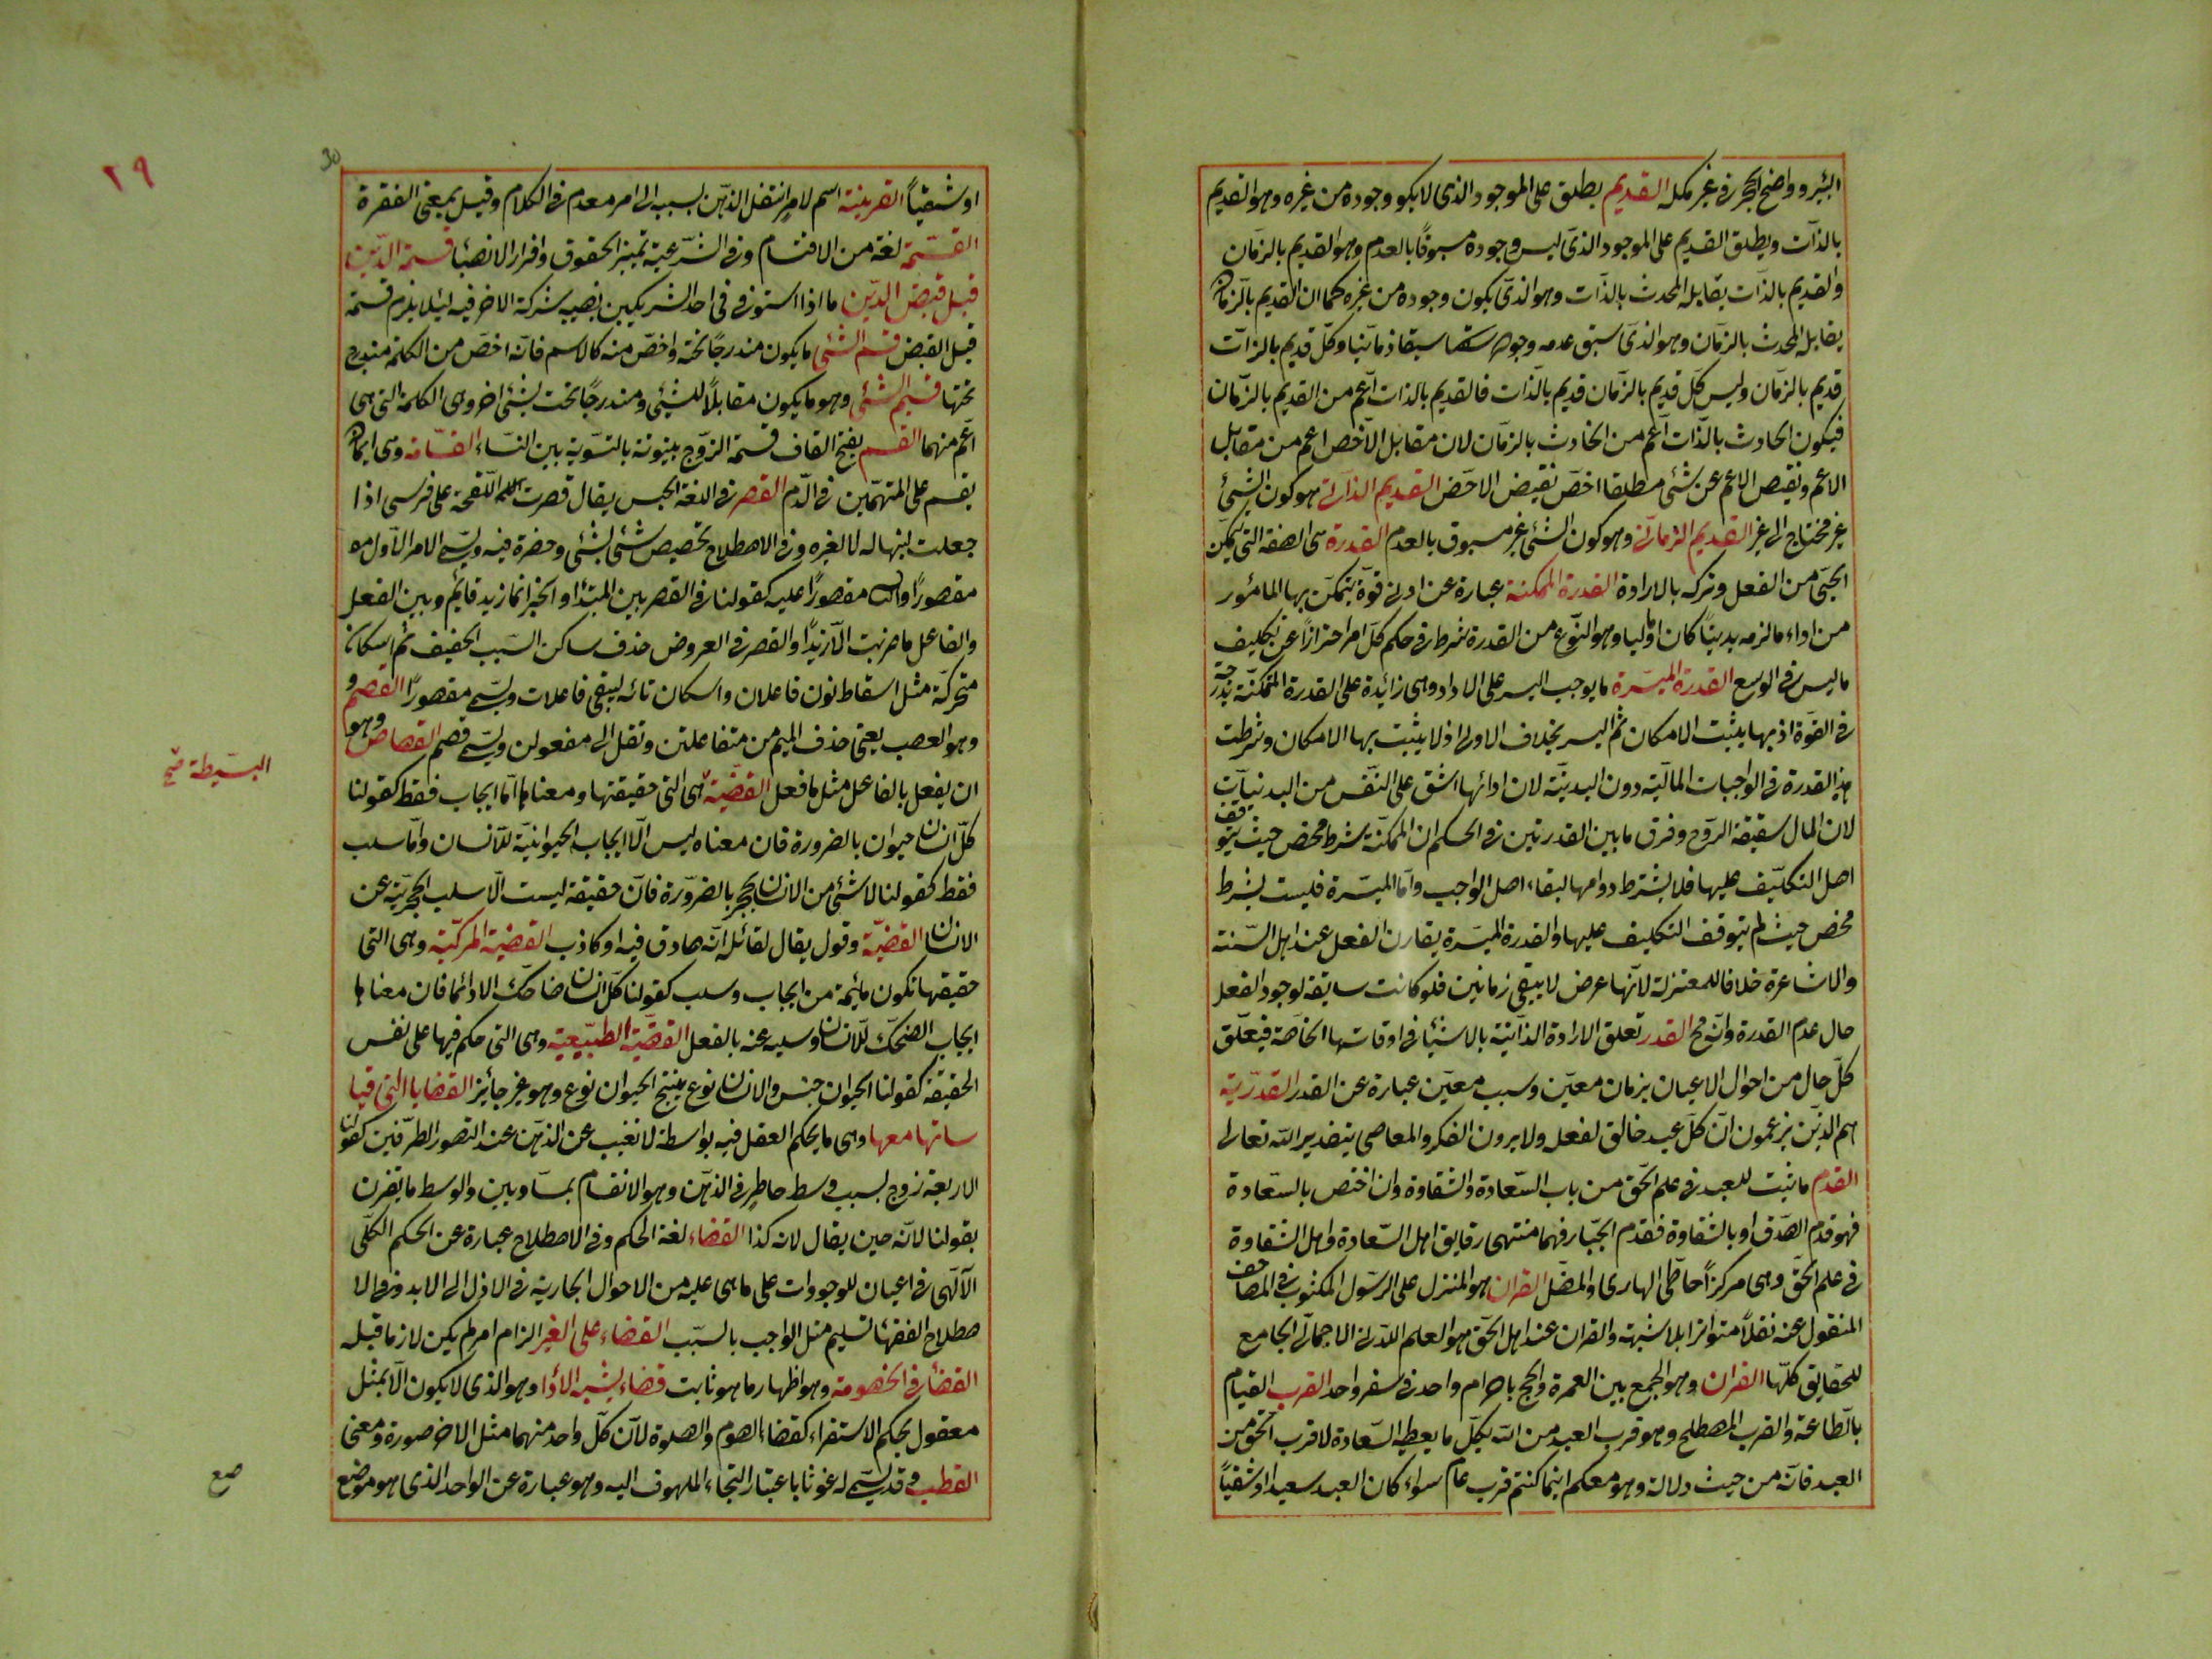 البئر وواضع الحجر في غير ملكه القديم يطلق على الموجود الذي لا يكون وجوده من غيره وهو القديم
بالذات ويطلق القديم على الموجود الذي ليس وجوده مسبوقا بالعدم وهو القديم بالزمان
والقديم بالذات يقابله المحدث بالذات وهو الذي يكون وجوده من غيره كما ان القديم بالزمان
يقابله المحدث بالزمان وهو الذي سبق عدمه وجوده سبقا زمانيا وكل قديم بالذات
قديم بالزمان وليس كل قديم بالزمان قديم بالذات فالقديم بالذات اعم من القديم بالزمان
فيكون الحادث بالذات اعم من الحادث بالزمان لان مقابل الاخص اعم من مقابل
الاعم ونقيض الاعم عن شئ مطلقا اخص نقيض الاخص القديم الذاتي هو كون الشئ
غير محتاج الى غير القديم الزماني وهو كون الشئ غير مسبوق بالعدم القدرة هى الصفة التى تمكن
الحى من الفعل وتركه بالارادة القدرة الممكنة عبارة عن ادنى قوة يتمكن بها المأمور
من اداء ما لزمه بدنيا كان او ماليا وهو النوع من القدرة شرط فى حكم كل امر احترازا عن تكليف
ما ليس فى الوسع القدرة الميسرة ما يوجب اليسر على الاداء وهى زائدة على القدرة الممكنة بدرجة
فى القوة اذ بها يثبت الامكان ثم اليسر بخلاف الاولى اذ لا يثبت بها الا الامكان وشرطت
هذه القدرة فى الواجبات المالية دون البدنية لان ادائها اشق على النفس من البدنيات
لان المال شقيقة الروح وفرق ما بين القدرتين فى الحكم ان الممكنة شرط محض حيث يتوقف
اصل التكليف عليها فلا يشترط دوامها لبقاء اصل الواجب واما الميسرة فليست بشرط
محض حيث لم يتوقف التكليف عليها والقدرة الميسرة يقارن الفعل عند اهل السنة
والاشاعرة خلافا للمعتزلة لانها عرض لا يبقى زمانين فلو كانت سابقة لوجود الفعل
حال عدم القدرة وانه مح القدر تعلق الارادة الذاتية بالاشيا فى اوقاتها الخاصة فيعلق
كل حال من احوال الاعيان بزمان معين وسبب معين عبارة عن القدر القدرية
هم الذين يزعمون ان كل عبد خالق لفعله ولا يرون الكفر والمعاصى بتقدير الله تعالى
القدم ما ثبت للعبد فى علم الحق من باب السعادة والشقاوة وان اختص بالسعادة
فهو قدم الصدق او بالشقاوة فقدم الجبار فهما منتهى رقايق اهل السعادة واهل الشقاوة
فى علم الحق وهى مركز احاطى الهادى والمضل القران هو المنزل على الرسول المكتوب فى المصاحف
المنقول عنه نقلا متواترا بلا شبهة والقران عند اهل الحق هو العلم اللدنى الاجمالى الجامع
للحقايق كلها القران وهو الجمع بين العمرة والحج باحرام واحد فى سفر واحد القرب القيام
بالطاعة والقرب المصطلح وهو قرب العبد من الله بكل ما يعطيه السعادة لا قرب الحق من
العبد فانه من حيث دلالة وهو معكم اينما كنتم قرب عام سواء كان العبد سعيدا او شقيا
٢٩
30
او شقيا القرينة اسم لامر انتقل الذهن بسببه الى امر معدم فى الكلام وقيل بمعنى الفقرة
القسمة لغة من الاقتسام وفى الشرعية تمييز الحقوق وافراز الانصبا قسمة الدين
قبل قبض الدين ما اذا استوفى فى احد الشريكين نصيبه شركة الاخر فيه لئلا يلزم قسمة
قبل القبض قسم الشئ ما يكون مندرجا تحته واخص منه كالاسم فانه اخص من الكلمة مندرج
تحتها قسيم الشئ وهو ما يكون مقابلا للشئ ومندرجا تحت شئ اخر وهى الكلمة التى هى
اعم منهما القسم بفتح القاف قسمة الزوج بيتوتة بالتسوية بين النساء القسامة وهى ايمان
يقسم على المتهمين فى الدم القصر فى اللغة الحبس يقال قصرت اللقحة على فرسى اذا
جعلت لبنها له لا لغيره وفى الاصطلاح تخصيص شئ بشئ وحضره فيه ويسمى الامر الاول
مقصورا والثانى مقصورا عليه كقولنا فى القصر بين المبتدا والخبر انما زيد قائم وبين الفعل
والفاعل ما ضربت الا زيدا والقصر فى العروض حذف ساكن السبب الخفيف ثم اسكان
متحركة مثل اسقاط نون فاعلان واسكان تائه ليبقى فاعلات ويسمى مقصورا القصم
وهو العصب يعنى حذف الميم من مفاعلتن ونقل الى مفعولن ويسمى قصم القصاص وهو
ان يفعل بالفاعل مثل ما فعل القضية هى التى حقيقتها ومعناها اما ايجاب فقط كقولنا
البسيطة صح
كل انسان حيوان بالضرورة فان معناه ليس الا ايجاب الحيوانية للانسان واما سلب
فقط كقولنا لا شئ من الانسان بحجر بالضرورة فان حقيقة ليست الا سلب الحجرية عن
الانسان القضية وقول يقال لقائله انه صادق فيه او كاذب القضية المركبة وهى التى
حقيقتها تكون ملتئمة من ايجاب وسلب كقولنا كل انسان ضاحك لا دائما فان معناها
ايجاب الضحك للانسان وسلبه عنه بالفعل القضية الطبيعية وهى التى حكم فيها على نفس
الحقيقة كقولنا الحيوان جنس والانسان نوع ينتج الحيوان نوع وهو غير جائز القضايا التى قيا
ساتها معها وهى ما يحكم العقل فيه بواسطة لا تغيب عن الذهن عند التصور الطرفين كقولنا
الاربعة زوج بسبب وسط حاضر فى الذهن وهو الانقسام بمتساويين والوسط ما يقرن
بقولنا لانه حين يقال لانه كذا القضاء لغة الحكم وفى الاصطلاح عبارة عن الحكم الكلى
الالهى فى اعيان الموجودات على ما هى عليه من الاحوال الجارية فى الازل الى الابد وفى الا
صطلاح الفقها تسليم مثل الواجب بالسبب القضاء على الغير الزام امر لم يكن لازما قبله
القضاء فى الخصومة وهو اظهار ما هو ثابت قضاء يشبه الأدا وهو الذى لا يكون الا بمثل
معقول بحكم الاستقراء كقضاء الصوم والصلوة لان كل واحد منهما مثل الاخر صورة ومعنى
القطب وقد يسمى له غوثا باعتبار التجاء الملهوف اليه وهو عبارة عن الواحد الذى هو موضع
صع